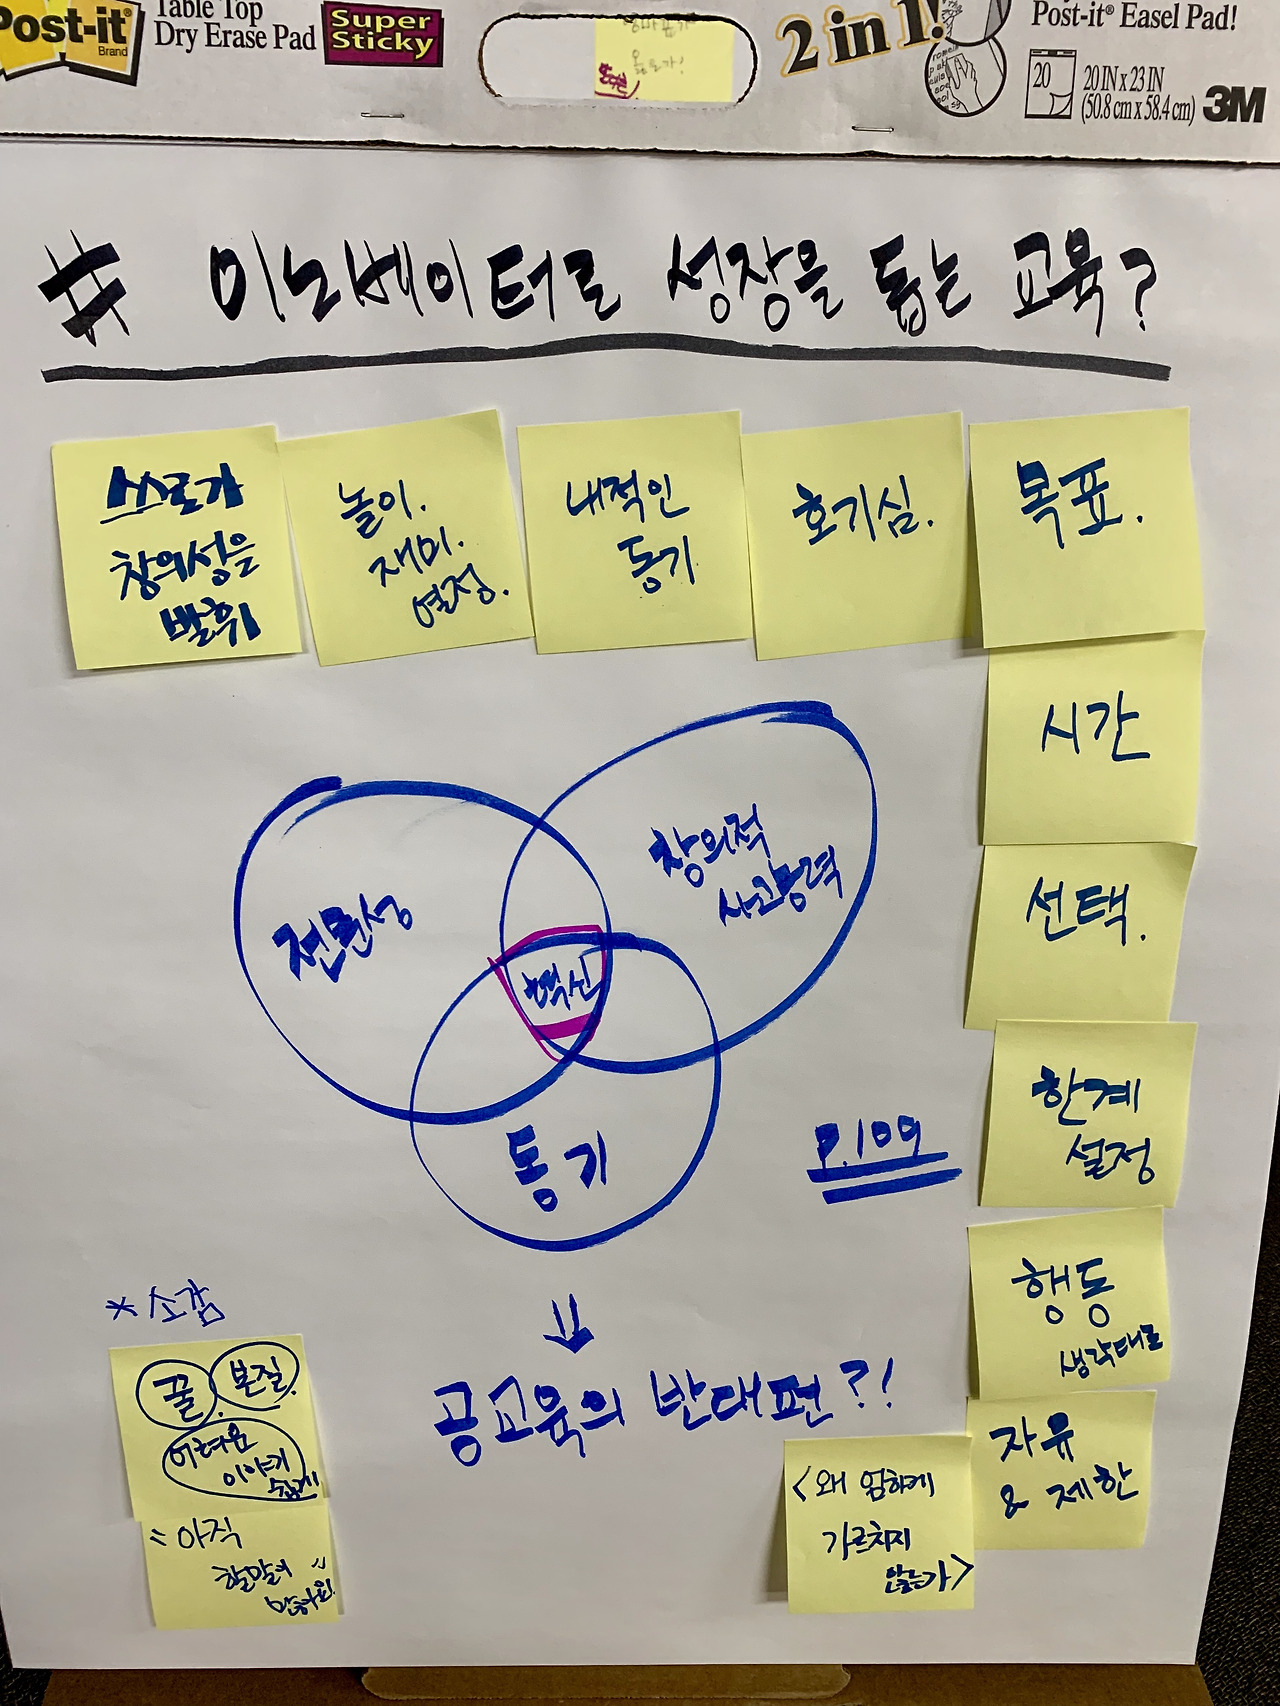 Post-it
Brand
Table Top
Dry Erase Pad
Super
Sticky
2 in 1!
Post-it® Easel Pad!
20
20 IN x 23 IN
(50.8 cm x 58.4 cm)
3M
# 이노베이터로 성장을 돕는 교육?
스스로가
창의성을
발휘
놀이.
재미.
열정.
내적인
동기
호기심.
목표.
시간
선택.
한계
설정
행동
생각대로
자유
& 제한
<왜 엄하게
가르치지
않는가>
전문성
창의적
사고능력
혁신
동기
P.109
공교육의 반대편?!
* 소감
꿀.
본질.
어려운
이야기
쉽게
"아직
할말이
많아요!"